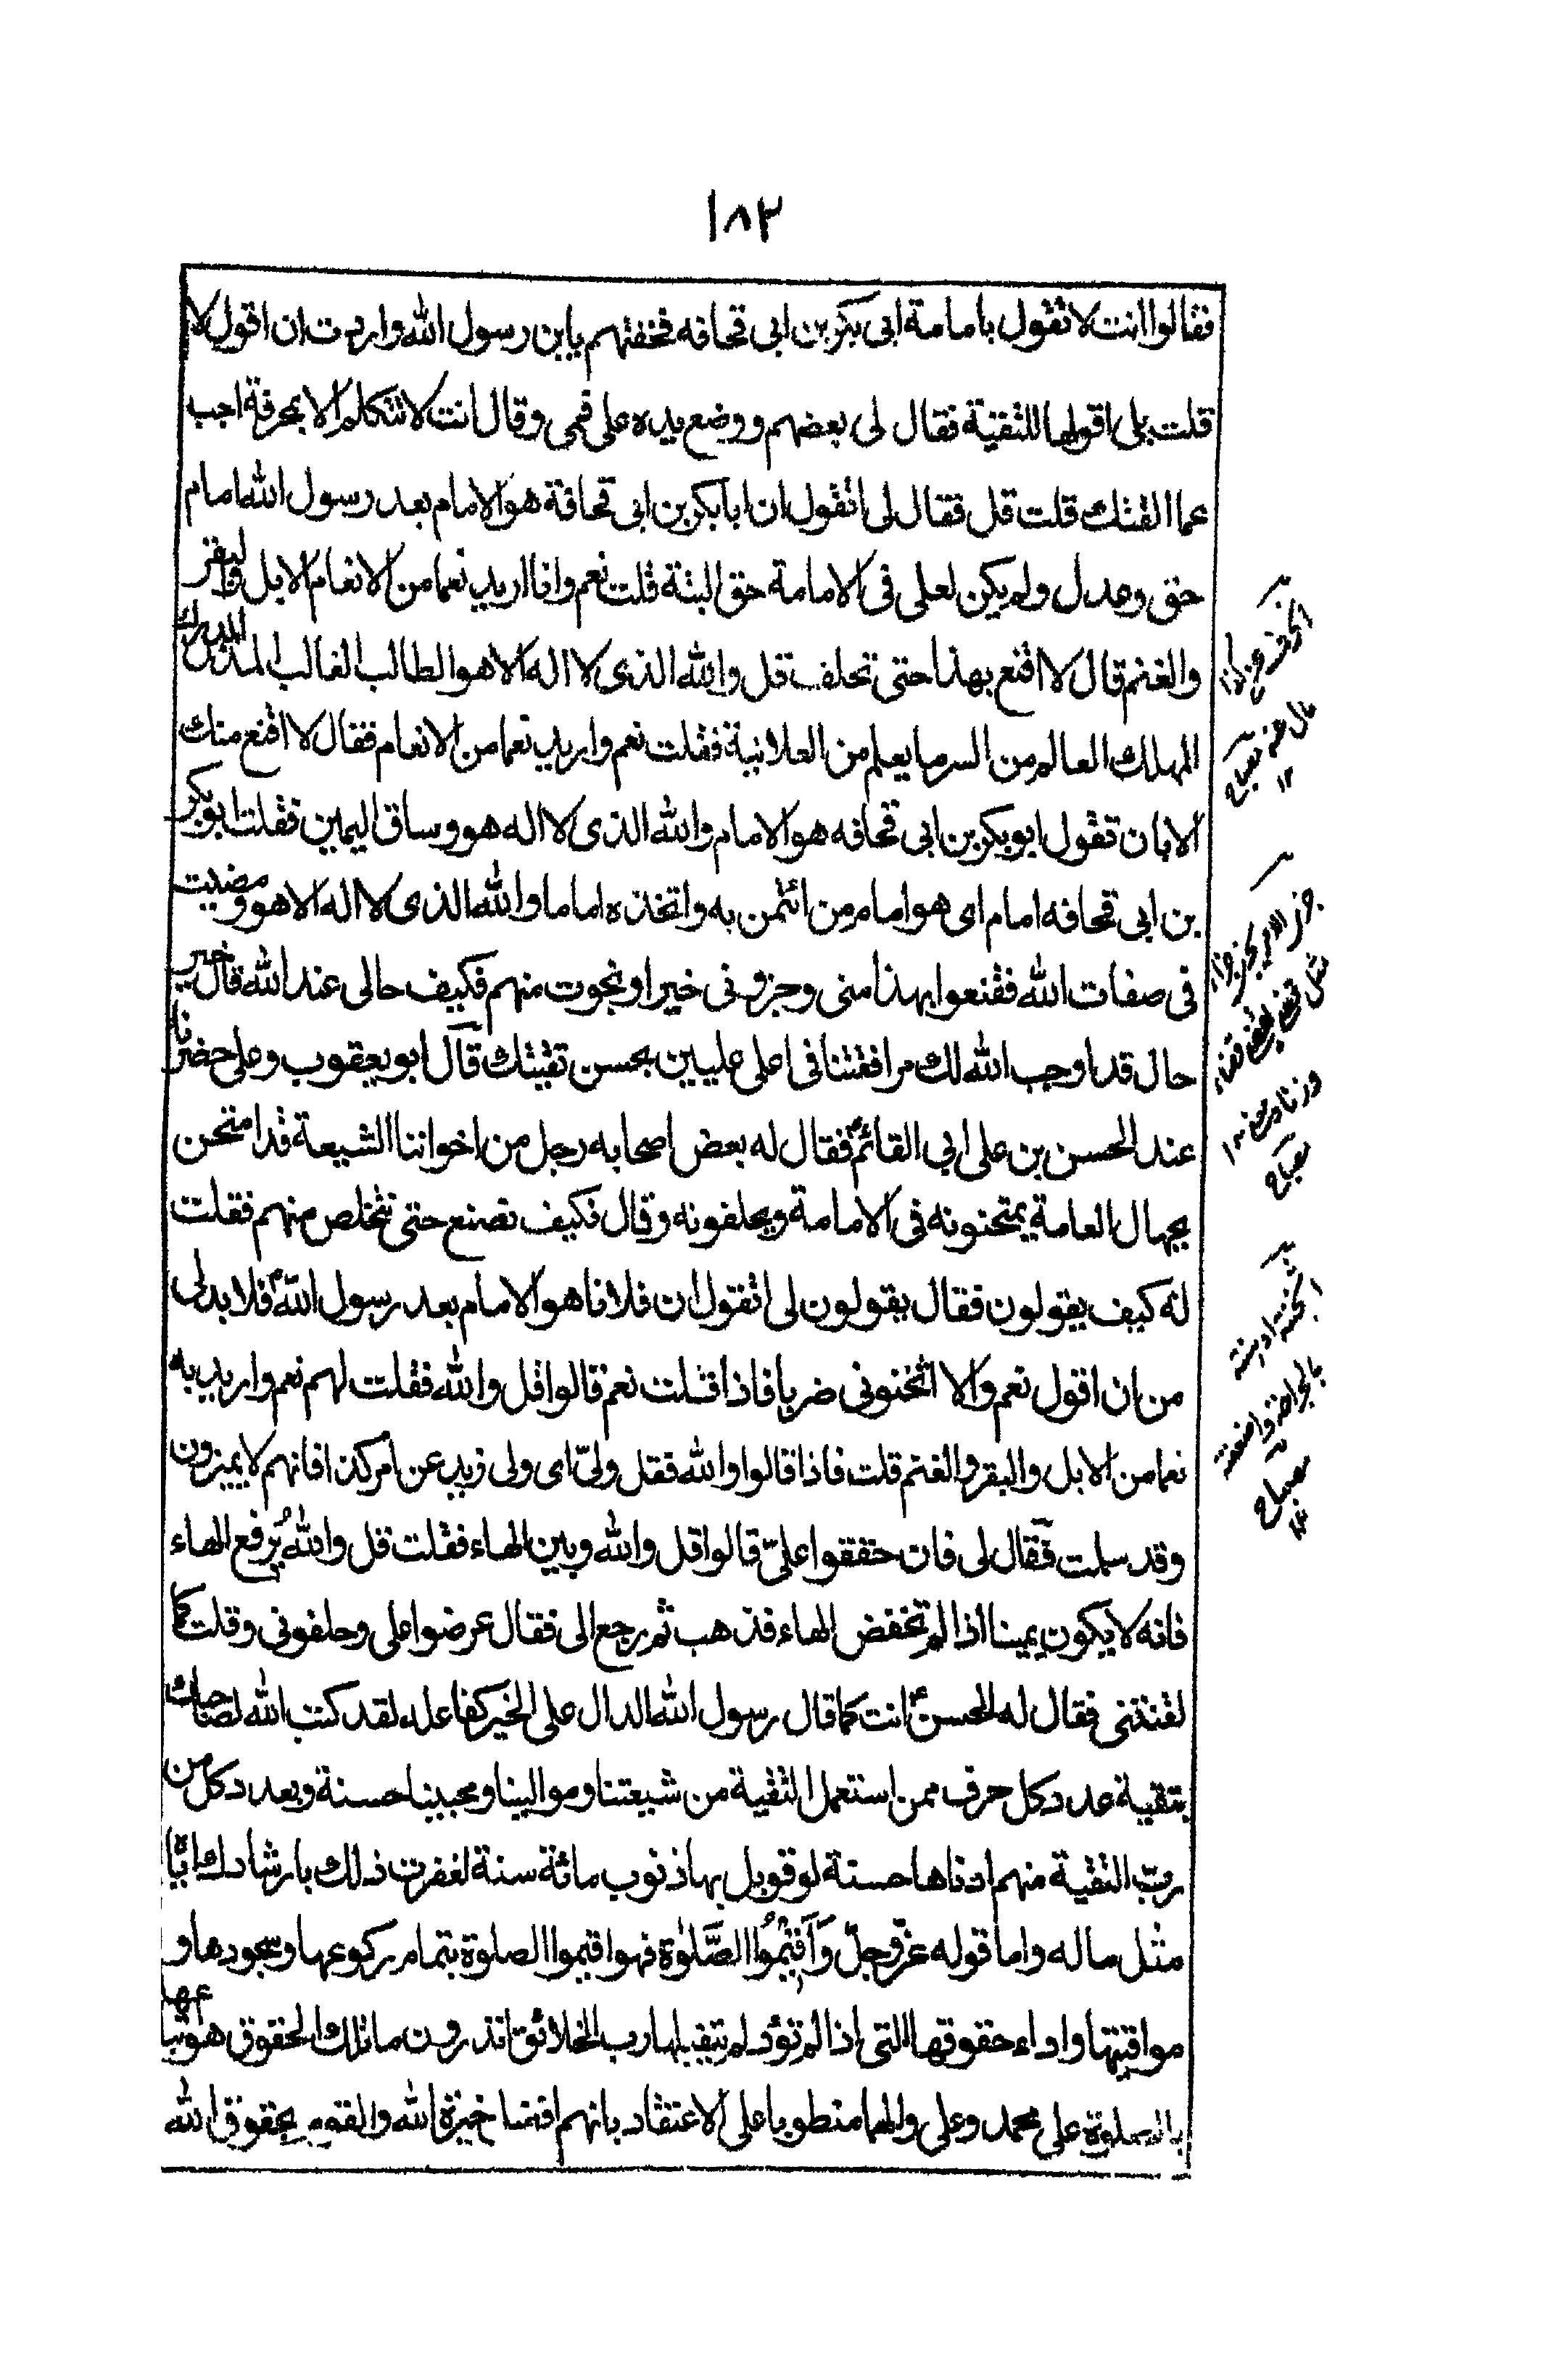 ١٨٢
فقالوا انت لا تقول بامامة ابى بكر بن ابى قحافه فخفتهم يا بن رسول الله واردت ان اقول لا
قلت بلى اقولها للتقية فقال لى بعضهم ووضع يده على فمى وقال انت لا تتكلم الا بمخرقة اجب
عما القنك قلت قل فقال لى اتقول ان ابا بكر بن ابى قحافة هو الامام بعد رسول الله امام
حق وعدل ولم يكن لعلى فى الامامة حق البتة قلت نعم وانا اريد نعما من الانعام الابل والبقر
والغنم قال لا اقنع بهذا حتى تحلف قل والله الذى لا اله الا هو الطالب الغالب المدرك
المهلك العالم من السر ما يعلم من العلانية فقلت نعم واريد نعما من الانعام فقال لا اقنع منك
الا بان تقول ابو بكر بن ابى قحافه هو الامام والله الذى لا اله هو وساق اليمين فقلت ابو بكر
بن ابى قحافه امام اى هو امام من ائتمن به واتخذه اماما والله الذى لا اله الا هو ومضيت
فى صفات الله فقنعوا بهذا منى وجزونى خيرا ونجوت منهم فكيف حالى عند الله قال خير
حال قد اوجب الله لك مرافقتنا فى اعلى عليين بحسن تقيتك قال ابو يعقوب وعلى حضرنا
عند الحسن بن على ابى القائم فقال له بعض اصحابه رجل من اخواننا الشيعة قد امتحن
بجهال العامة يمتحنونه فى الامامة ويحلفونه وقال فكيف نصنع حتى نتخلص منهم فقلت
له كيف يقولون فقال يقولون لى اتقول ان فلانا هو الامام بعد رسول الله فلا بد لى
من ان اقول نعم والا اثخنونى ضربا فاذا قلت نعم قالوا قل والله فقلت لهم نعم واريد به
نعما من الابل والبقر والغنم قلت فاذا قالوا والله فقل ولىّ اى ولى زيد عن امر كذا فانهم لا يميزون
وقد سلمت فقال لى فان حققوا علىّ قالوا قل والله وبين الهاء فقلت قل والله برفع الهاء
فانه لا يكون يمينا اذا لم تخفض الهاء فذهب ثم رجع الى فقال عرضوا على وحلفونى وقلت كما
لقنتنى فقال له الحسن انت كما قال رسول الله الدال على الخير كفاعله لقد كتب الله لصاحبك
بتقيته عدد كل حرف ممن استعمل التقية من شيعتنا وموالينا ومحبينا حسنة وبعدد كل من
ربّ التقية منهم ادناها حسنة لو قوبل بها ذنوب مائة سنة لغفرت ذلك بارشادك اياه
مثل ما له واما قوله عزّ وجلّ وَأَقِيمُوا الصَّلوٰةَ فهو اقيموا الصلوة بتمام ركوعها وسجودها و
مواقيتها واداء حقوقها التى اذا لم تؤد لم يتقبلها رب الخلائق اتدرون ما تلك الحقوق هو اتباعها
بالصلوة على محمد وعلى والهما منطويا على الاعتقاد بانهم افضل خيرة الله والقوم بحقوق الله